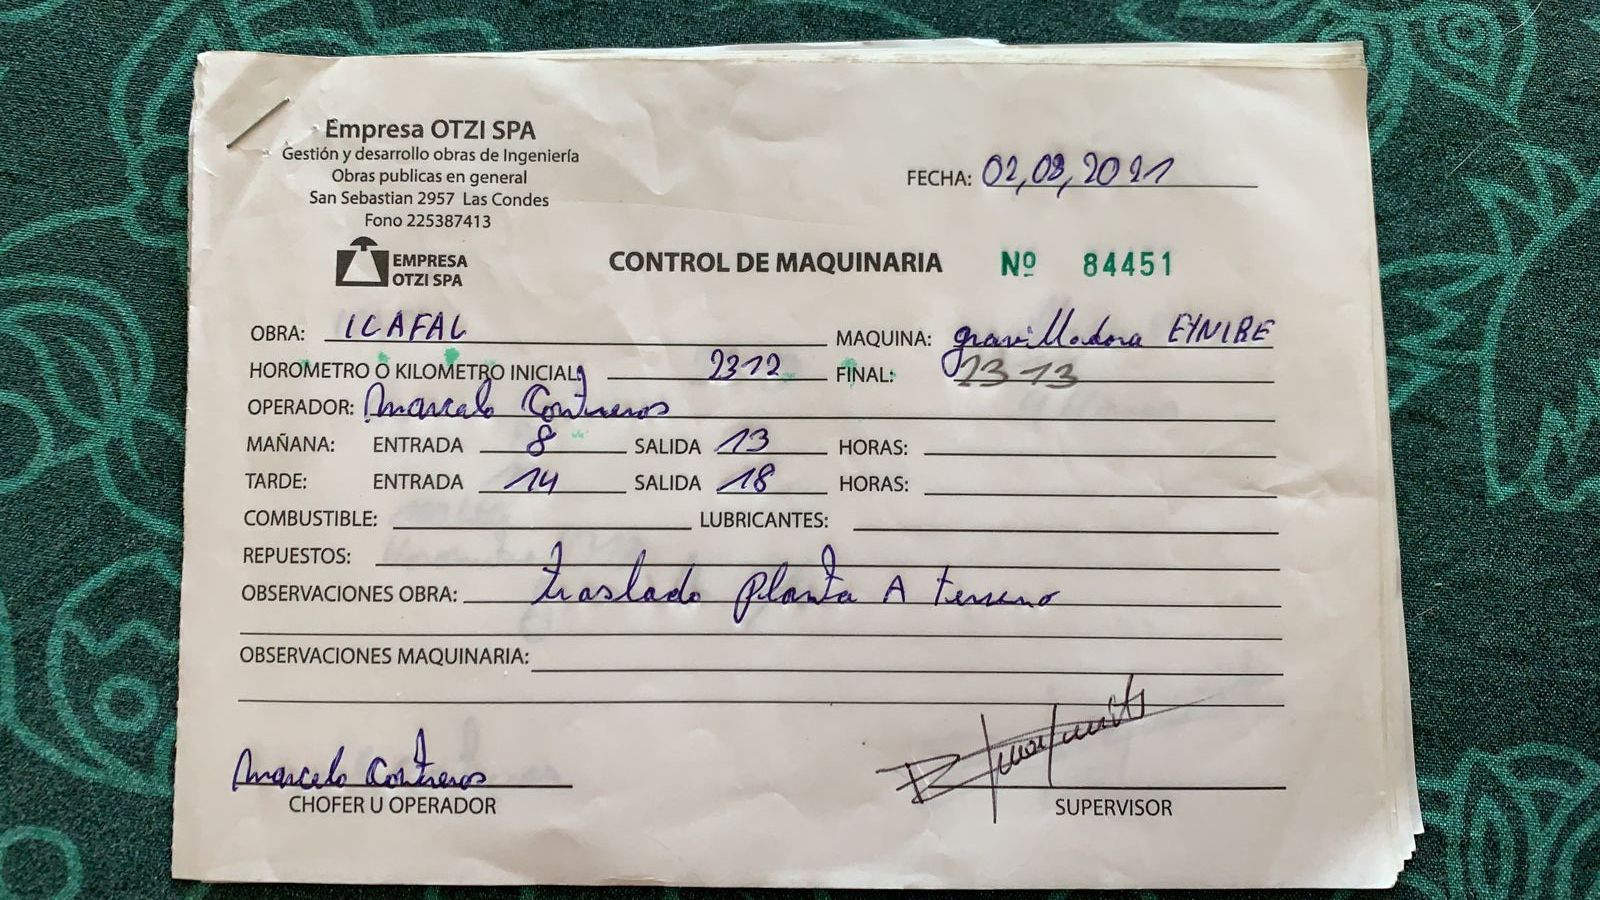 Empresa OTZI SPA
Gestión y desarrollo obras de Ingeniería
Obras publicas en general
San Sebastian 2957 Las Condes
Fono 225387413
FECHA: 02,08,2021
EMPRESA
OTZI SPA
CONTROL DE MAQUINARIA Nº 84451
OBRA: ICAFAL MAQUINA: gravilladora ETNIRE
HOROMETRO O KILOMETRO INICIAL: 2312 FINAL: 2313
OPERADOR: Marcelo Contreros
MAÑANA: ENTRADA 8 SALIDA 13 HORAS:
TARDE: ENTRADA 14 SALIDA 18 HORAS:
COMBUSTIBLE: LUBRICANTES:
REPUESTOS:
OBSERVACIONES OBRA: traslado planta A terreno
OBSERVACIONES MAQUINARIA:
Marcelo Contreros
CHOFER U OPERADOR SUPERVISOR